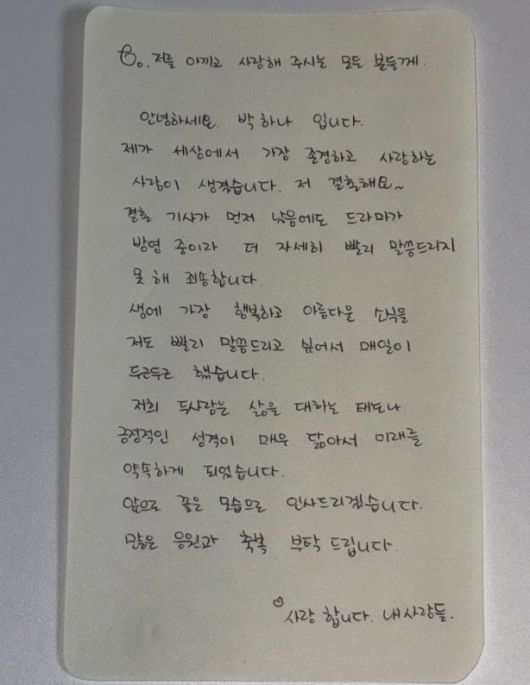 To. 저를 아끼고 사랑해 주시는 모든 분들께.
안녕하세요. 박하나 입니다.
제가 세상에서 가장 존경하고 사랑하는
사람이 생겼습니다. 저 결혼해요~
결혼 기사가 먼저 났음에도 드라마가
방영 중이라 더 자세히 빨리 말씀드리지
못 해 죄송합니다
생에 가장 행복하고 아름다운 소식을
저도 빨리 말씀드리고 싶어서 매일이
두근두근 했습니다.
저희 두사람은 삶을 대하는 태도나
긍정적인 성격이 매우 닮아서 미래를
약속하게 되었습니다.
앞으로 좋은 모습으로 인사드리겠습니다.
많은 응원과 축복 부탁 드립니다.
♡사랑 합니다. 내사람들.